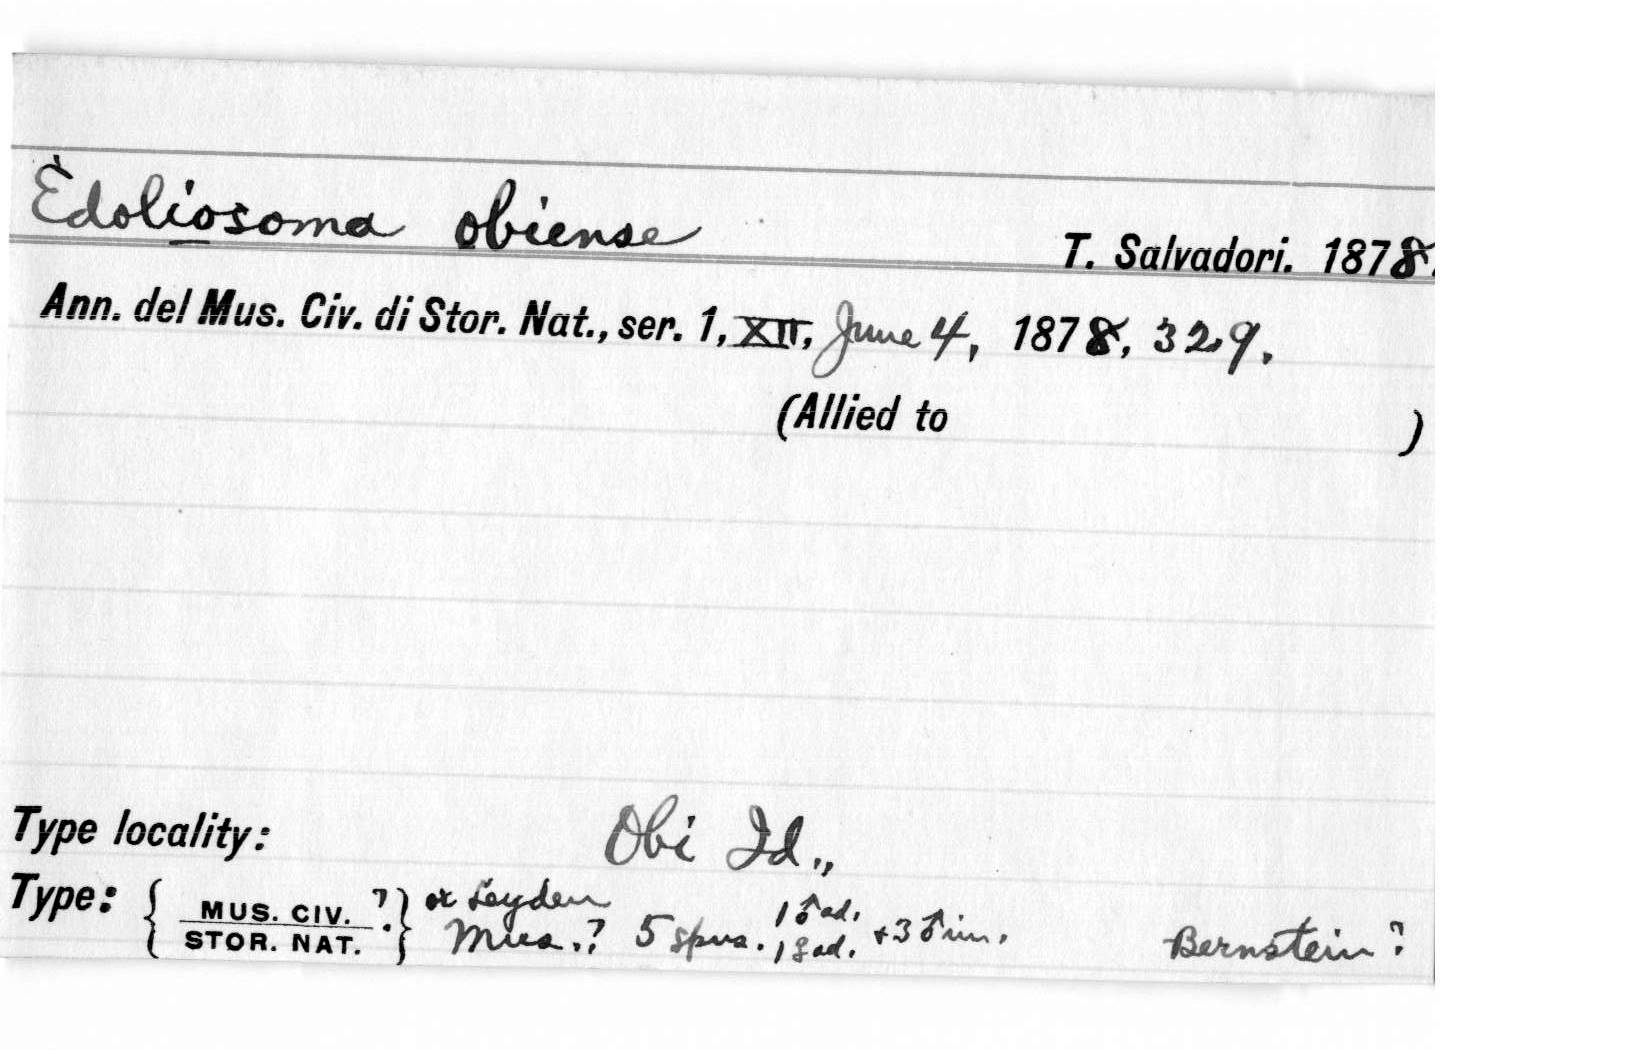 Edoliosoma obiense
T. Salvadori. 1878.
Ann. del Mus. Civ. di Stor. Nat., ser. 1, XII, June 4, 1878, 329.
(Allied to )
Type locality: Obi Id.,
Type: { MUS. CIV. ? } or Leyden 1 ♂ ad.
STOR. NAT. . Mus.? 5 spns. 1 ♀ ad. + 3 ♂ im. Bernstein?